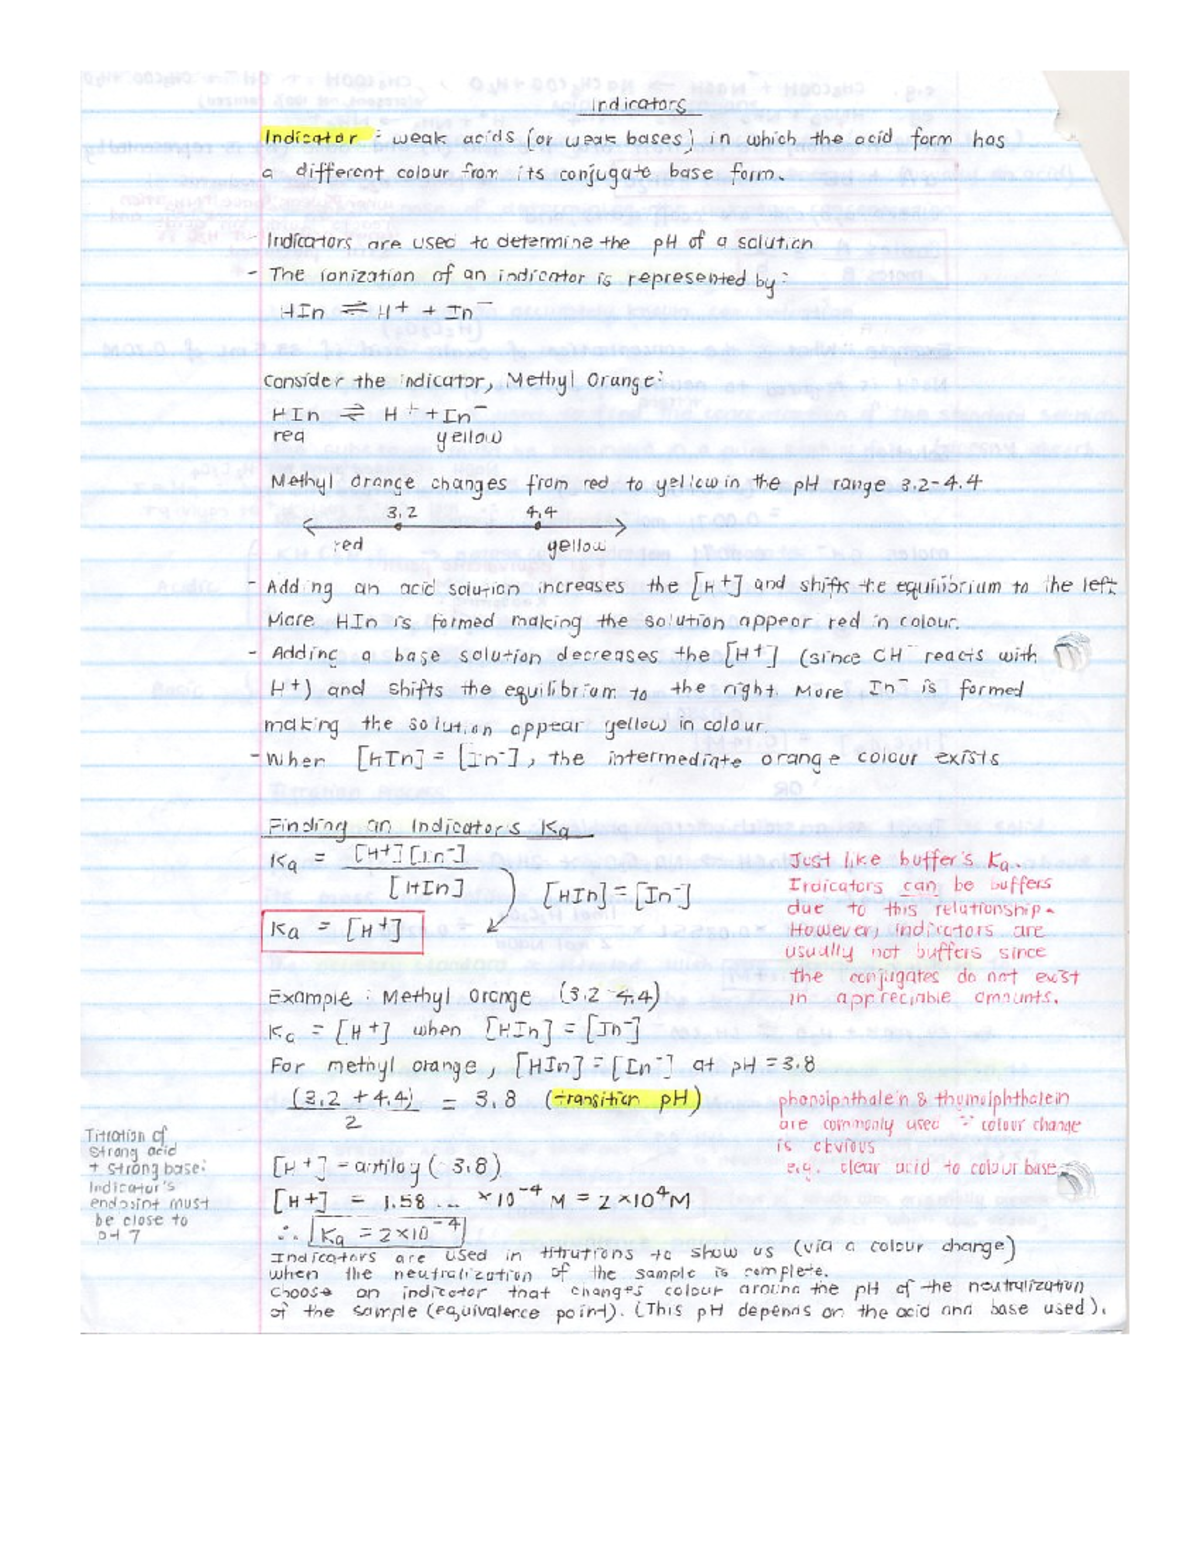 Indicators
Indicator : weak acids (or weak bases) in which the acid form has
a different colour from its conjugate base form.
- Indicators are used to determine the pH of a solution
- The ionization of an indicator is represented by:
HIn ⇌ H+ + In⁻
Consider the indicator, Methyl Orange:
HIn ⇌ H+ + In⁻
red yellow
Methyl orange changes from red to yellow in the pH range 3.2-4.4
3.2 4.4
red yellow
- Adding an acid solution increases the [H+] and shifts the equilibrium to the left
More HIn is formed making the solution appear red in colour.
- Adding a base solution decreases the [H+] (since OH⁻ reacts with
H+) and shifts the equilibrium to the right. More In⁻ is formed
making the solution appear yellow in colour.
- When [HIn] = [In⁻], the intermediate orange colour exists
Finding an Indicator's Ka
Ka = [H+][In⁻]
[HIn]
[HIn] = [In⁻]
Ka = [H+]
Just like buffer's Ka.
Indicators can be buffers
due to this relationship.
However, indicators are
usually not buffers since
the conjugates do not exist
in appreciable amounts.
Example : Methyl Orange (3.2-4.4)
Ka = [H+] when [HIn] = [In⁻]
For methyl orange, [HIn] = [In⁻] at pH = 3.8
(3.2 + 4.4) = 3.8 (transition pH)
2
phenolphthalein & thymolphthalein
are commonly used ∵ colour change
is obvious
e.g. clear acid to colour base
Titration of
strong acid
+ strong base:
Indicator's
endpoint must
be close to
pH 7
[H+] = antilog (-3.8)
[H+] = 1.58 ... ×10⁻⁴ M = 2×10⁴M
∴ Ka = 2×10⁻⁴
Indicators are used in titrations to show us (via a colour change)
when the neutralization of the sample is complete.
Choose an indicator that changes colour around the pH of the neutralization
of the sample (equivalence point). (This pH depends on the acid and base used).